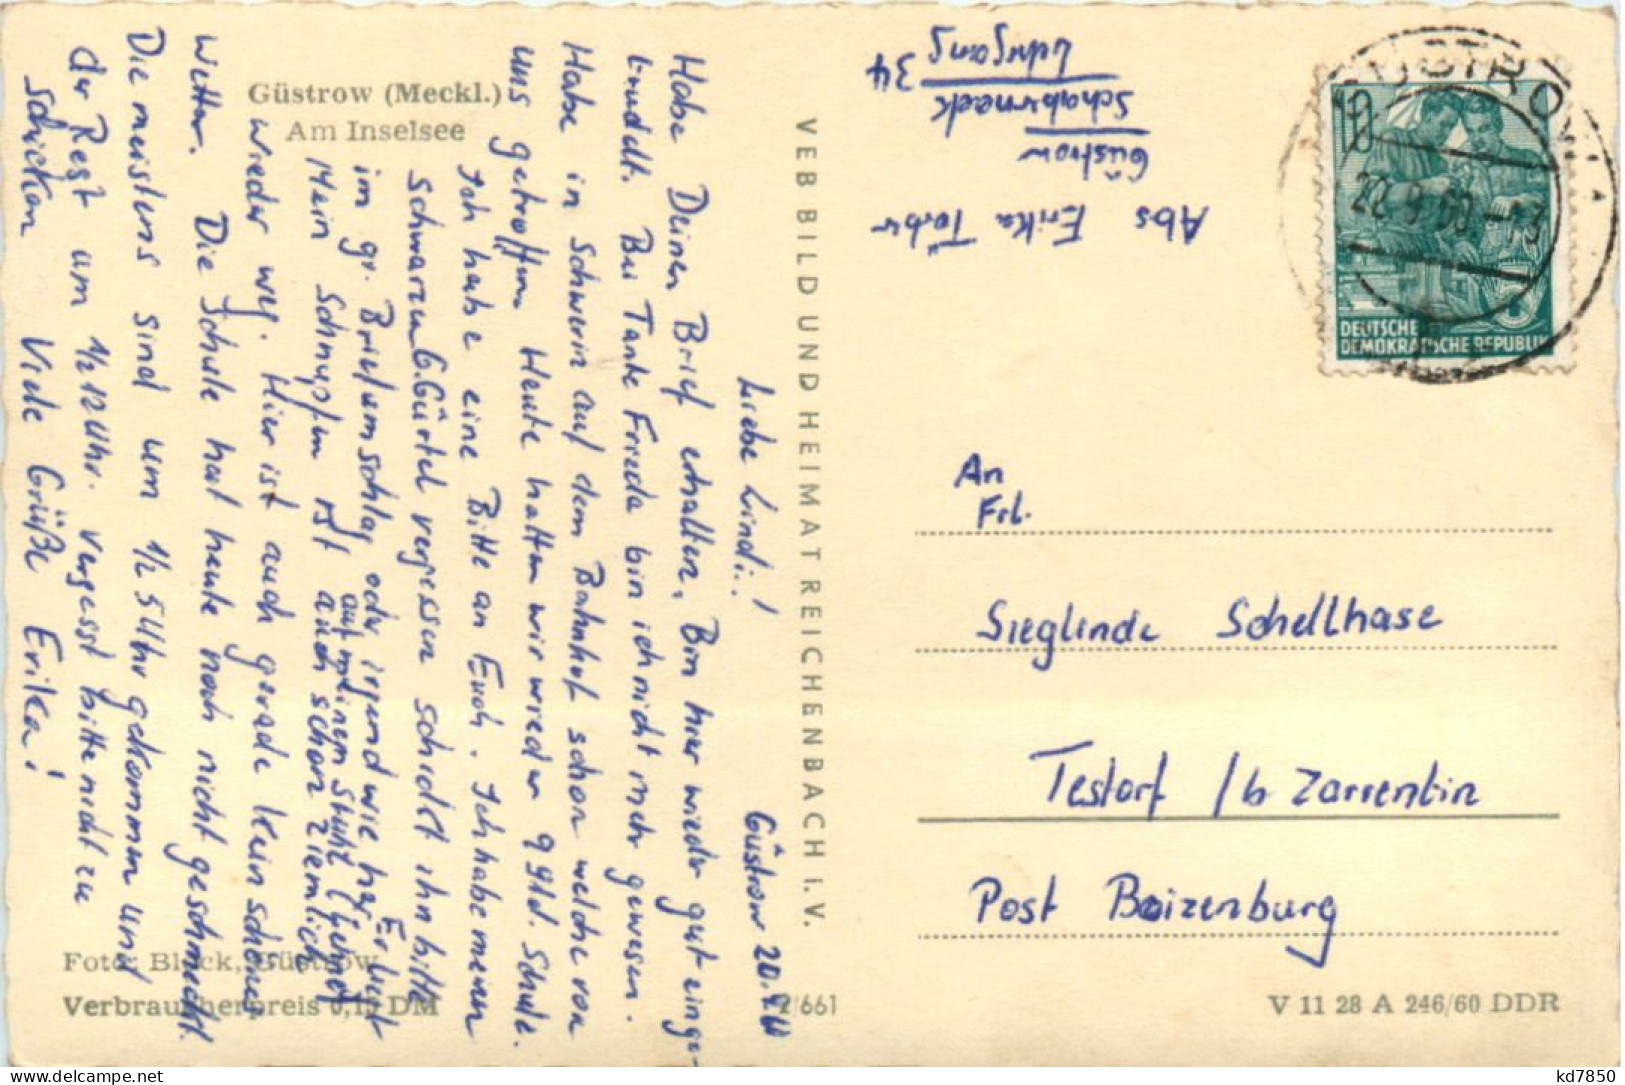 Güstrow (Meckl.)
Am Inselsee
Güstrow 20.
Liebe Lindi!
Habe Deinen Brief erhalten. Bin hier wieder gut einge-
trudelt. Bei Tante Frieda bin ich nicht mehr gewesen.
Habe in Schwerin auf dem Bahnhof schon welche von
uns getroffen. Heute hatten wir wieder 9 Std. Schule.
Ich habe eine Bitte an Euch. Ich habe meinen
schwarzen G. Gürtel vergessen schickt ihn bitte
im gr. Briefumschlag oder irgendwie her. Er liegt
auf meinem Stuhl (Lehne)
Mein Schnupfen ist auch schon ziemlich
wieder weg. Hier ist auch gerade kein schönes
Wetter. Die Schule hat heute noch nicht geschmeckt.
Die meisten sind um 1/2 5 Uhr gekommen und
der Rest um 1/2 12 Uhr. Vergesst bitte nicht zu
schicken Viele Grüße Erika!
Foto: Block, Güstrow
Verbraucherpreis 0,15 DM
/661
VEB BILD UND HEIMAT REICHENBACH I. V.
Abs Erika
Güstrow
Schabernack
Lehrgang 34
GÜSTROW
10
DEUTSCHE
DEMOKRATISCHE REPUBLIK
An
Frl.
Sieglinde Schellhase
Testorf /b Zarrentin
Post Boizenburg
V 11 28 A 246/60 DDR
kd7850